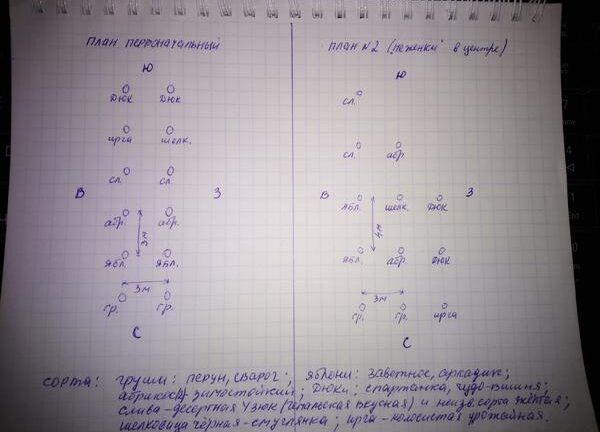 план первоначальный
Ю
дюк дюк
ирга шелк.
сл. сл.
В З
абр. абр.
3м
ябл. ябл.
3м
гр. гр.
С
план №2 ("неженки" в центре)
Ю
сл.
сл. абр.
В З
ябл. шелк. дюк
4м
ябл. абр. дюк
3м
гр. гр. ирга
С
сорта: груши: перун, сварог; яблони: заветное, аркадик;
абрикосы зимостойкий; дюки: спартанка, чудо-вишня;
слива-десертная и неизв. сорта жёлтая;
шелковица чёрная-смуглянка; ирга-колосистая урожайная.